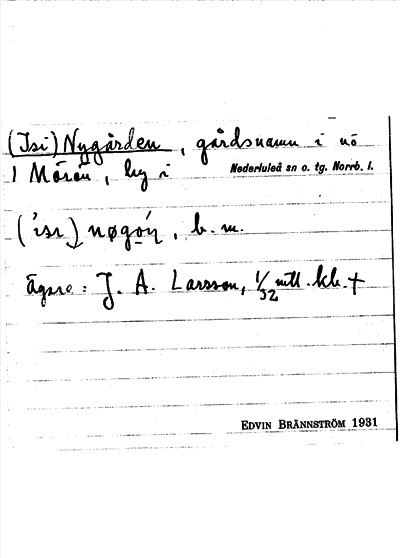 (Isi) Nygården, gårdsnamn i nö
1 Mörån, by i Nederluleå sn o. tg. Norrb. l.
('isɪ) nøgo̲ń, b. m.
Ägare: J. A. Larsson, 1/32 mtl. kb. +
EDVIN BRÄNNSTRÖM 1931